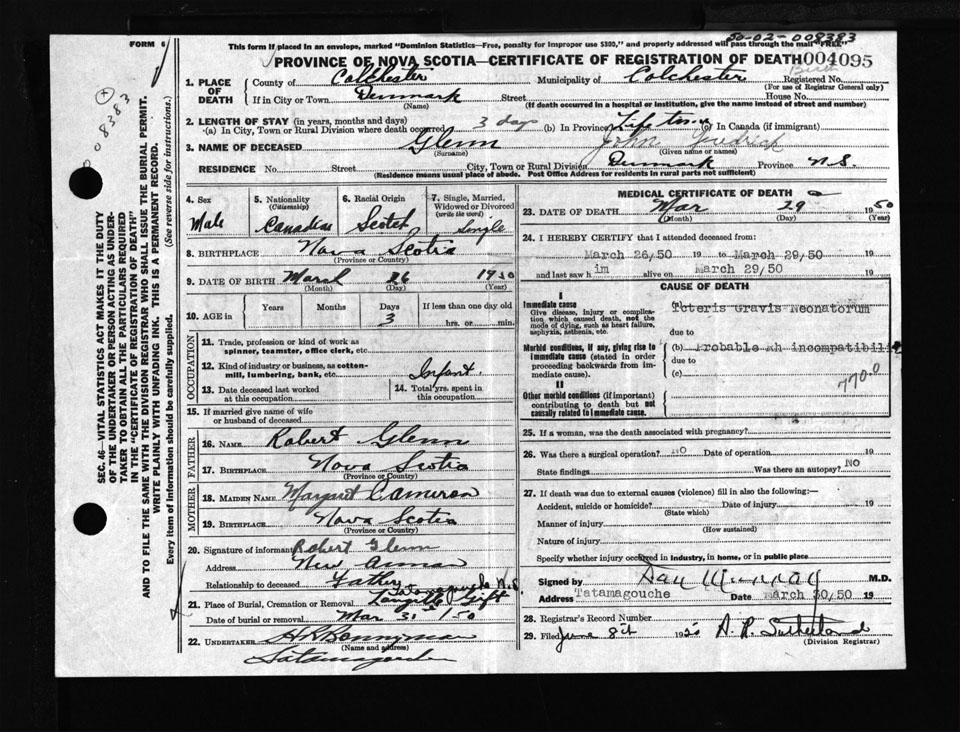 50-02-008383
FORM 6
This form if placed in an envelope, marked "Dominion Statistics—Free, penalty for improper use $300," and properly addressed will pass through the mail "FREE"
PROVINCE OF NOVA SCOTIA—CERTIFICATE OF REGISTRATION OF DEATH 004095
008383
SEC. 46— VITAL STATISTICS ACT MAKES IT THE DUTY
OF THE UNDERTAKER OR PERSON ACTING AS UNDER-
TAKER TO OBTAIN ALL THE PARTICULARS REQUIRED
IN THE "CERTIFICATE OF REGISTRATION OF DEATH"
AND TO FILE THE SAME WITH THE DIVISION REGISTRAR WHO SHALL ISSUE THE BURIAL PERMIT.
WRITE PLAINLY WITH UNFADING INK. THIS IS A PERMANENT RECORD.
Every item of information should be carefully supplied. (See reverse side for instructions.)
1. PLACE OF DEATH
County of Colchester Municipality of Colchester Birth Registered No.
(For use of Registrar General only)
If in City or Town Denmark Street House No.
(Name) (If death occurred in a hospital or institution, give the name instead of street and number)
2. LENGTH OF STAY (in years, months and days)
(a) In City, Town or Rural Division where death occurred 3 days (b) In Province Life time (c) In Canada (if immigrant)
3. NAME OF DECEASED Glenn John
(Surname) (Given name or names)
RESIDENCE No. Street City, Town or Rural Division Denmark Province N.S.
(Residence means usual place of abode. Post Office Address for residents in rural parts not sufficient)
4. Sex Male
5. Nationality (Citizenship) Canadian
6. Racial Origin Scotch
7. Single, Married, Widowed or Divorced (write the word) Single
8. BIRTHPLACE Nova Scotia
(Province or Country)
9. DATE OF BIRTH March 26 1950
(Month) (Day) (Year)
10. AGE in Years Months Days 3 If less than one day old
hrs. or min.
OCCUPATION
11. Trade, profession or kind of work as
spinner, teamster, office clerk, etc.
12. Kind of industry or business, as cotton-
mill, lumbering, bank, etc. Infant.
13. Date deceased last worked
at this occupation
14. Total yrs. spent in
this occupation
15. If married give name of wife
or husband of deceased
FATHER
16. NAME Robert Glenn
17. BIRTHPLACE Nova Scotia
(Province or Country)
MOTHER
18. MAIDEN NAME Margaret Cameron
19. BIRTHPLACE Nova Scotia
(Province or Country)
20. Signature of informant Robert Glenn
Address New Annan
Relationship to deceased Father
Tatamagouche N.S.
21. Place of Burial, Cremation or Removal
Date of burial or removal Mar 31 1950
22. UNDERTAKER
(Name and address)
Tatamagouche
MEDICAL CERTIFICATE OF DEATH
23. DATE OF DEATH Mar 29 1950
(Month) (Day) (Year)
24. I HEREBY CERTIFY that I attended deceased from:
March 26/50 19 to March 29/50 19
and last saw h im alive on March 29/50 19
CAUSE OF DEATH
I
Immediate cause
Give disease, injury or complica-
tion which caused death, not the
mode of dying, such as heart failure,
asphyxia, asthenia, etc.
(a) Icteris Gravis Neonatorum
due to
Morbid conditions, if any, giving rise to
immediate cause (stated in order
proceeding backwards from im-
mediate cause).
(b) Probable Rh incompatibili
due to
(c)
770.0
II
Other morbid conditions (if important)
contributing to death but not
causally related to immediate cause.
25. If a woman, was the death associated with pregnancy?
26. Was there a surgical operation? NO Date of operation 19
State findings Was there an autopsy? NO
27. If death was due to external causes (violence) fill in also the following:—
Accident, suicide or homicide? Date of injury 19
(State which)
Manner of injury
(How sustained)
Nature of injury
Specify whether injury occurred in industry, in home, or in public place
Signed by Dan Murray M.D.
Address Tatamagouche Date March 30/50 19
28. Registrar's Record Number
29. Filed June 8th 1950
(Division Registrar)